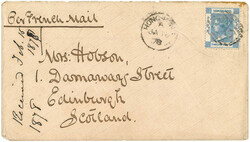 Per French Mail
Mrs: Hobson,
1. Darnaway Street
Edinburgh
Scotland.
Received Feb. 18
1878